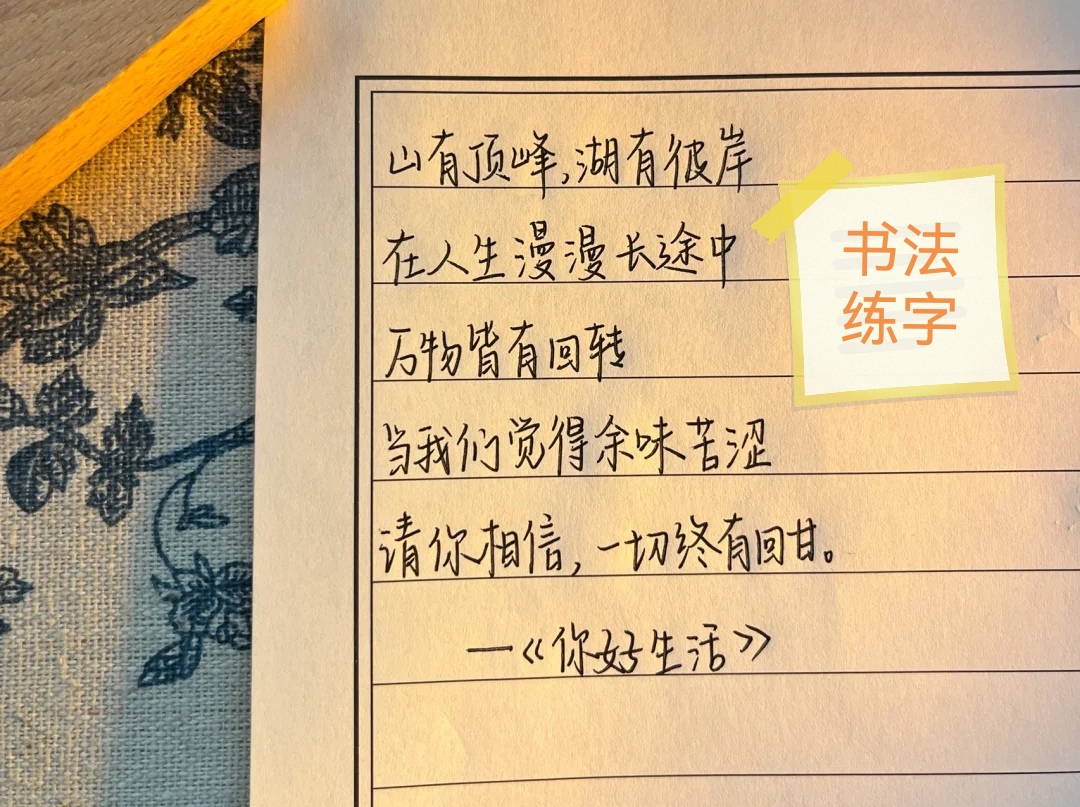 山有顶峰,湖有彼岸
在人生漫漫长途中
万物皆有回转
当我们觉得余味苦涩
请你相信,一切终有回甘。
—《你好生活》
书法
练字